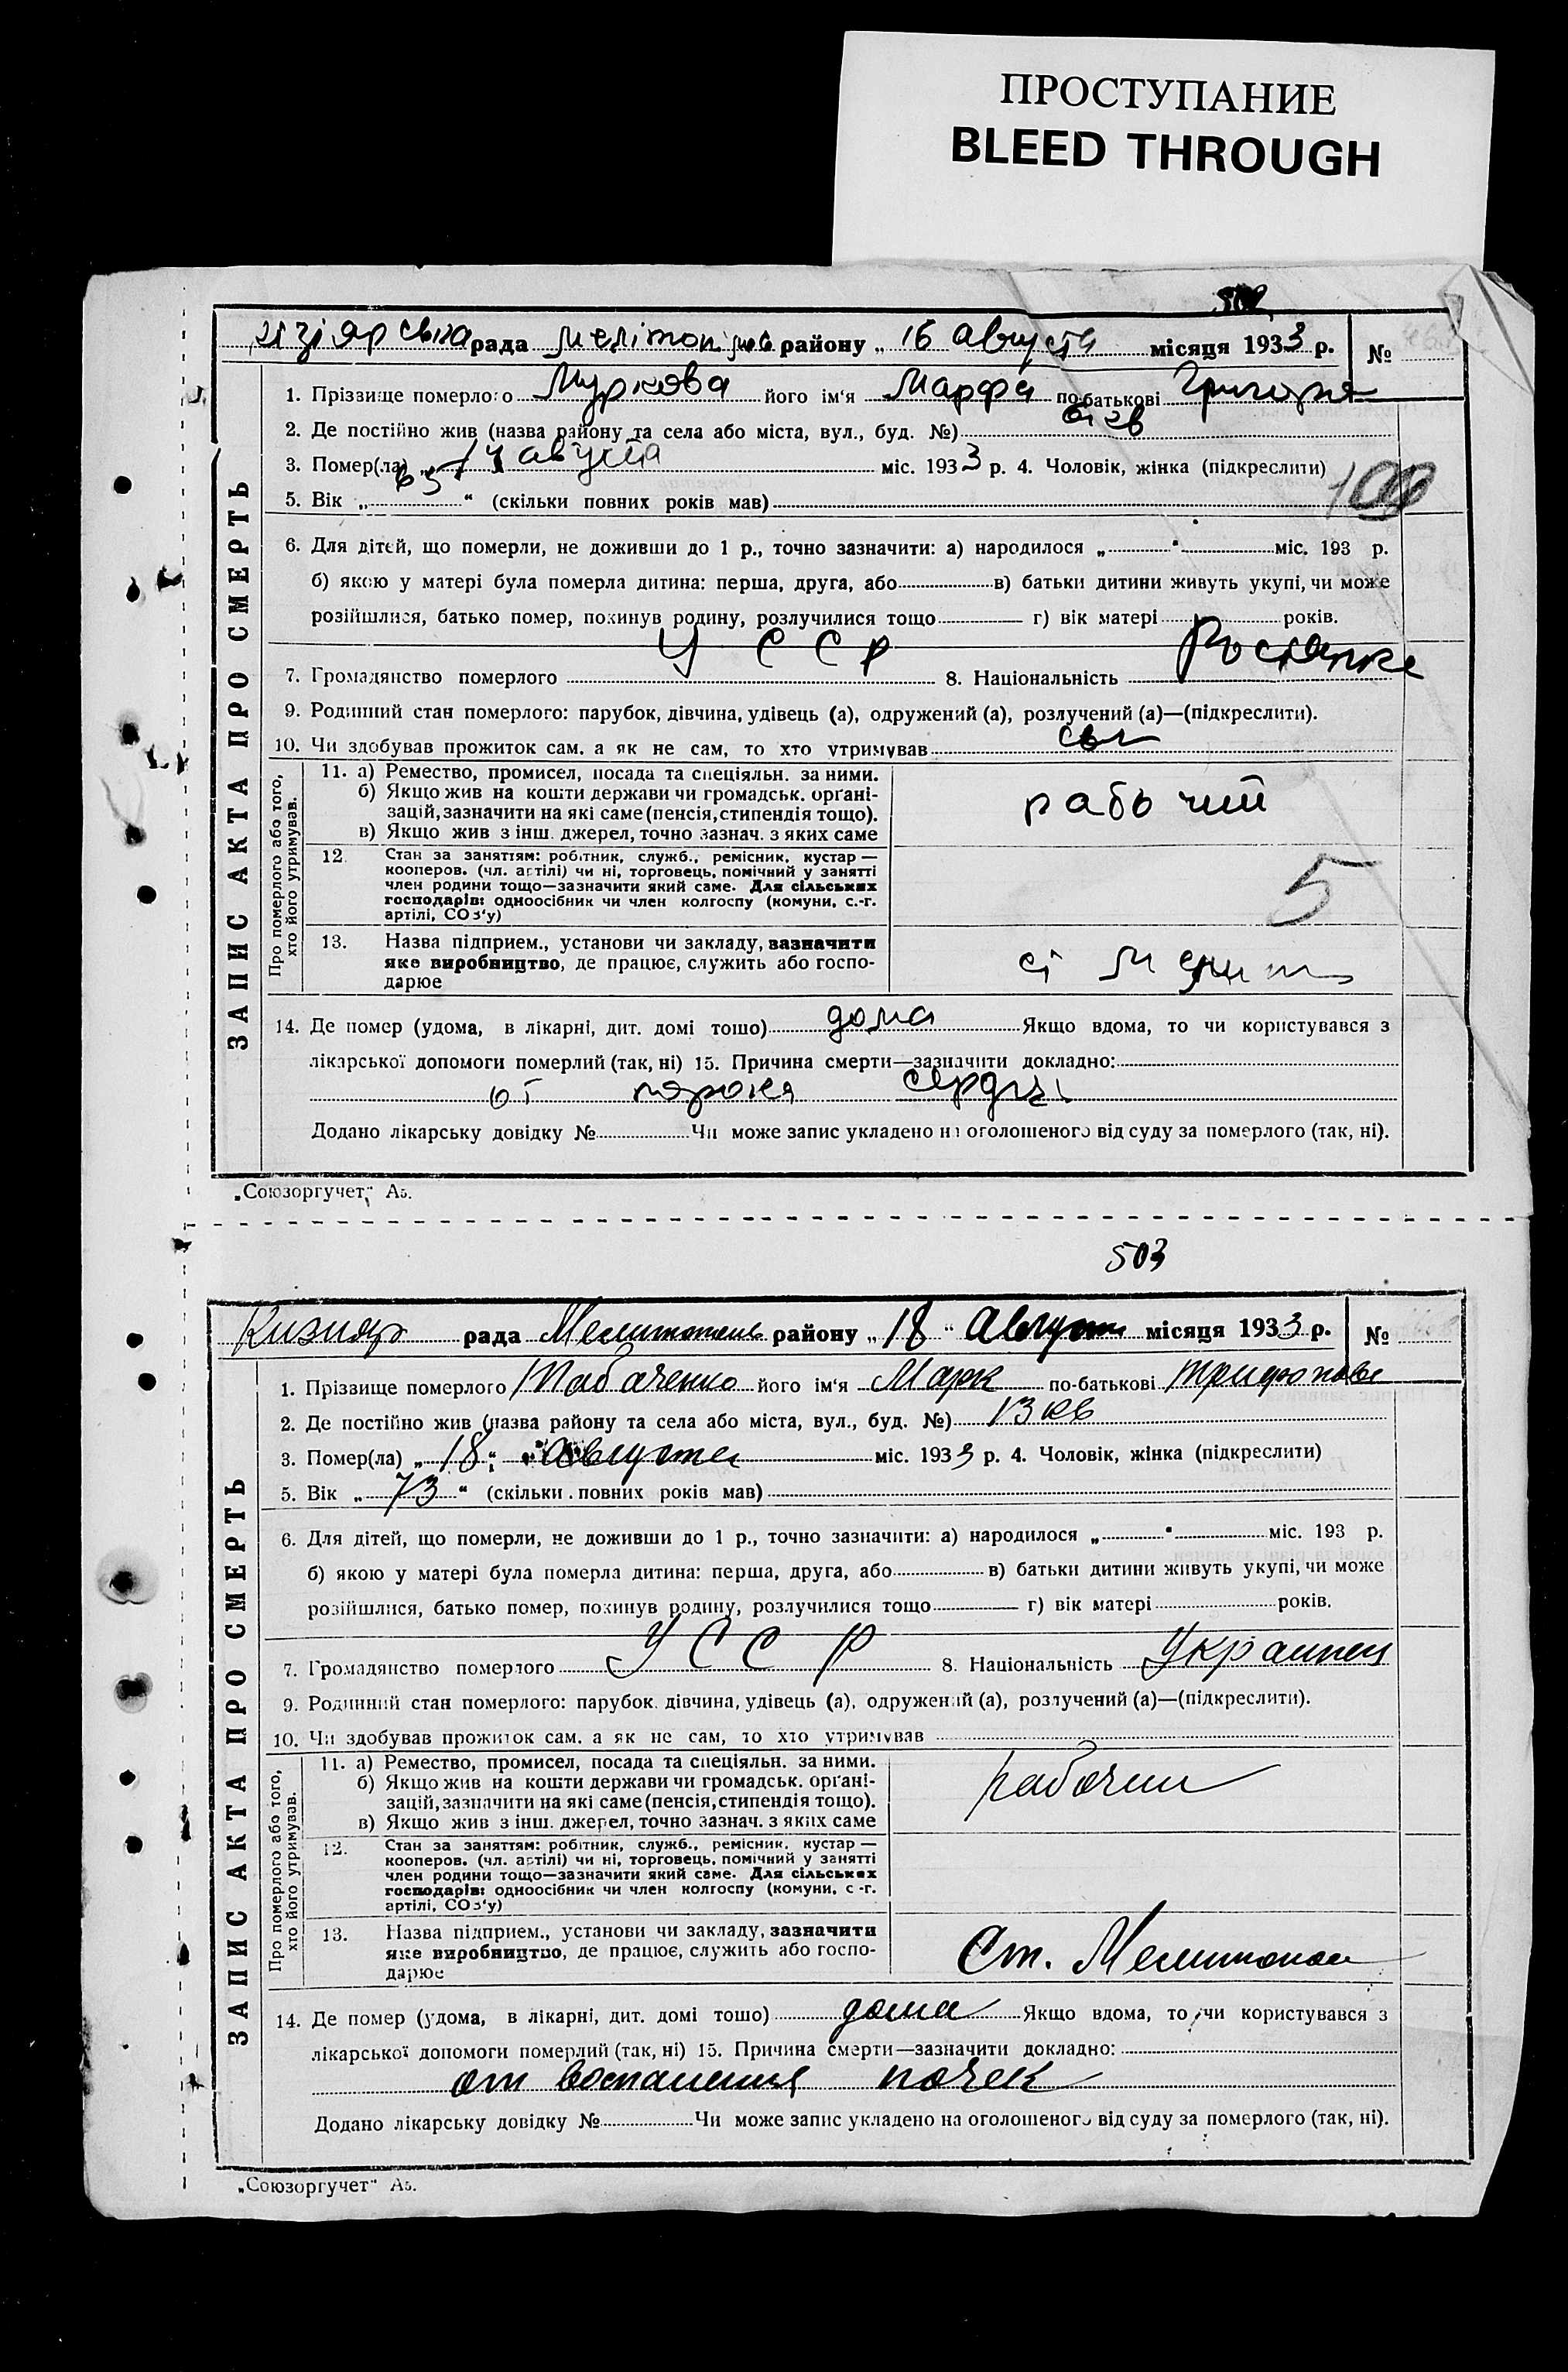 ПРОСТУПАНИЕ
BLEED THROUGH
502
рада района „ 16 августа місяця 1933 р. №
ЗАПИС АКТА ПРО СМЕРТЬ
1. Прізвище померлого Муркова його ім‘я Марфа по-батькові
2. Де постійно жив (назва району та села або міста, вул., буд. №)
3. Помер(ла) „ 14 августа міс. 1933 р. 4. Чоловік, жінка (підкреслити)
5. Вік „ 65 “ (скільки повних років мав)
6. Для дітей, що померли, не доживши до 1 р., точно зазначити: а) народилося „ “ міс. 193 р.
б) якою у матері була померла дитина: перша, друга, або в) батьки дитини живуть укупі, чи може
розійшлися, батько помер, покинув родину, розлучилися тощо г) вік матері років.
7. Громадянство померлого УССР 8. Національність
9. Родинний стан померлого: парубок, дівчина, удівець (а), одружений (а), розлучений (а)—(підкреслити).
10. Чи здобував прожиток сам, а як не сам, то хто утримував
Про померлого або того, хто його утримував.
11. а) Ремество, промисел, посада та спеціяльн. за ними.
б) Якщо жив на кошти держави чи громадськ. орґані-
зацій, зазначити на які саме (пенсія, стипендія тощо).
в) Якщо жив з інш. джерел, точно зазнач. з яких саме
рабочий
12. Стан за заняттям: робітник, служб., ремісник, кустар —
кооперов. (чл. артілі) чи ні, торговець, помічний у занятті
член родини тощо—зазначити який саме. Для сільських
господарів: одноосібник чи член колгоспу (комуни, с.-г.
артілі, СОз‘у)
5
13. Назва підприєм., установи чи закладу, зазначити
яке виробництво, де працює, служить або госпо-
дарює
14. Де помер (удома, в лікарні, дит. домі тощо) дома Якщо вдома, то чи користувався з
лікарської допомоги померлий (так, ні) 15. Причина смерти—зазначити докладно:
от порока сердца
Додано лікарську довідку № Чи може запис укладено на оголошеного від суду за померлого (так, ні).
„Союзоргучет“ А5.
503
Кизияр рада Мелитополь району „ 18 “ Август місяця 1933 р. №
ЗАПИС АКТА ПРО СМЕРТЬ
1. Прізвище померлого Табаченко його ім‘я Марк по-батькові Трифонове
2. Де постійно жив (назва району та села або міста, вул., буд. №) 13 кв
3. Помер(ла) „ 18 “ августа міс. 1933 р. 4. Чоловік, жінка (підкреслити)
5. Вік „ 73 “ (скільки повних років мав)
6. Для дітей, що померли, не доживши до 1 р., точно зазначити: а) народилося „ “ міс. 193 р.
б) якою у матері була померла дитина: перша, друга, або в) батьки дитини живуть укупі, чи може
розійшлися, батько помер, покинув родину, розлучилися тощо г) вік матері років.
7. Громадянство померлого УССР 8. Національність Украинец
9. Родинний стан померлого: парубок, дівчина, удівець (а), одружений (а), розлучений (а)—(підкреслити).
10. Чи здобував прожиток сам, а як не сам, то хто утримував
Про померлого або того, хто його утримував.
11. а) Ремество, промисел, посада та спеціяльн. за ними.
б) Якщо жив на кошти держави чи громадськ. орґані-
зацій, зазначити на які саме (пенсія, стипендія тощо).
в) Якщо жив з інш. джерел, точно зазнач. з яких саме
рабочий
12. Стан за заняттям: робітник, служб., ремісник, кустар —
кооперов. (чл. артілі) чи ні, торговець, помічний у занятті
член родини тощо—зазначити який саме. Для сільських
господарів: одноосібник чи член колгоспу (комуни, с.-г.
артілі, СОз‘у)
13. Назва підприєм., установи чи закладу, зазначити
яке виробництво, де працює, служить або госпо-
дарює
Ст. Мелитополь
14. Де помер (удома, в лікарні, дит. домі тощо) дома Якщо вдома, то чи користувався з
лікарської допомоги померлий (так, ні) 15. Причина смерти—зазначити докладно:
от воспаления почек
Додано лікарську довідку № Чи може запис укладено на оголошеного від суду за померлого (так, ні).
„Союзоргучет“ А5.